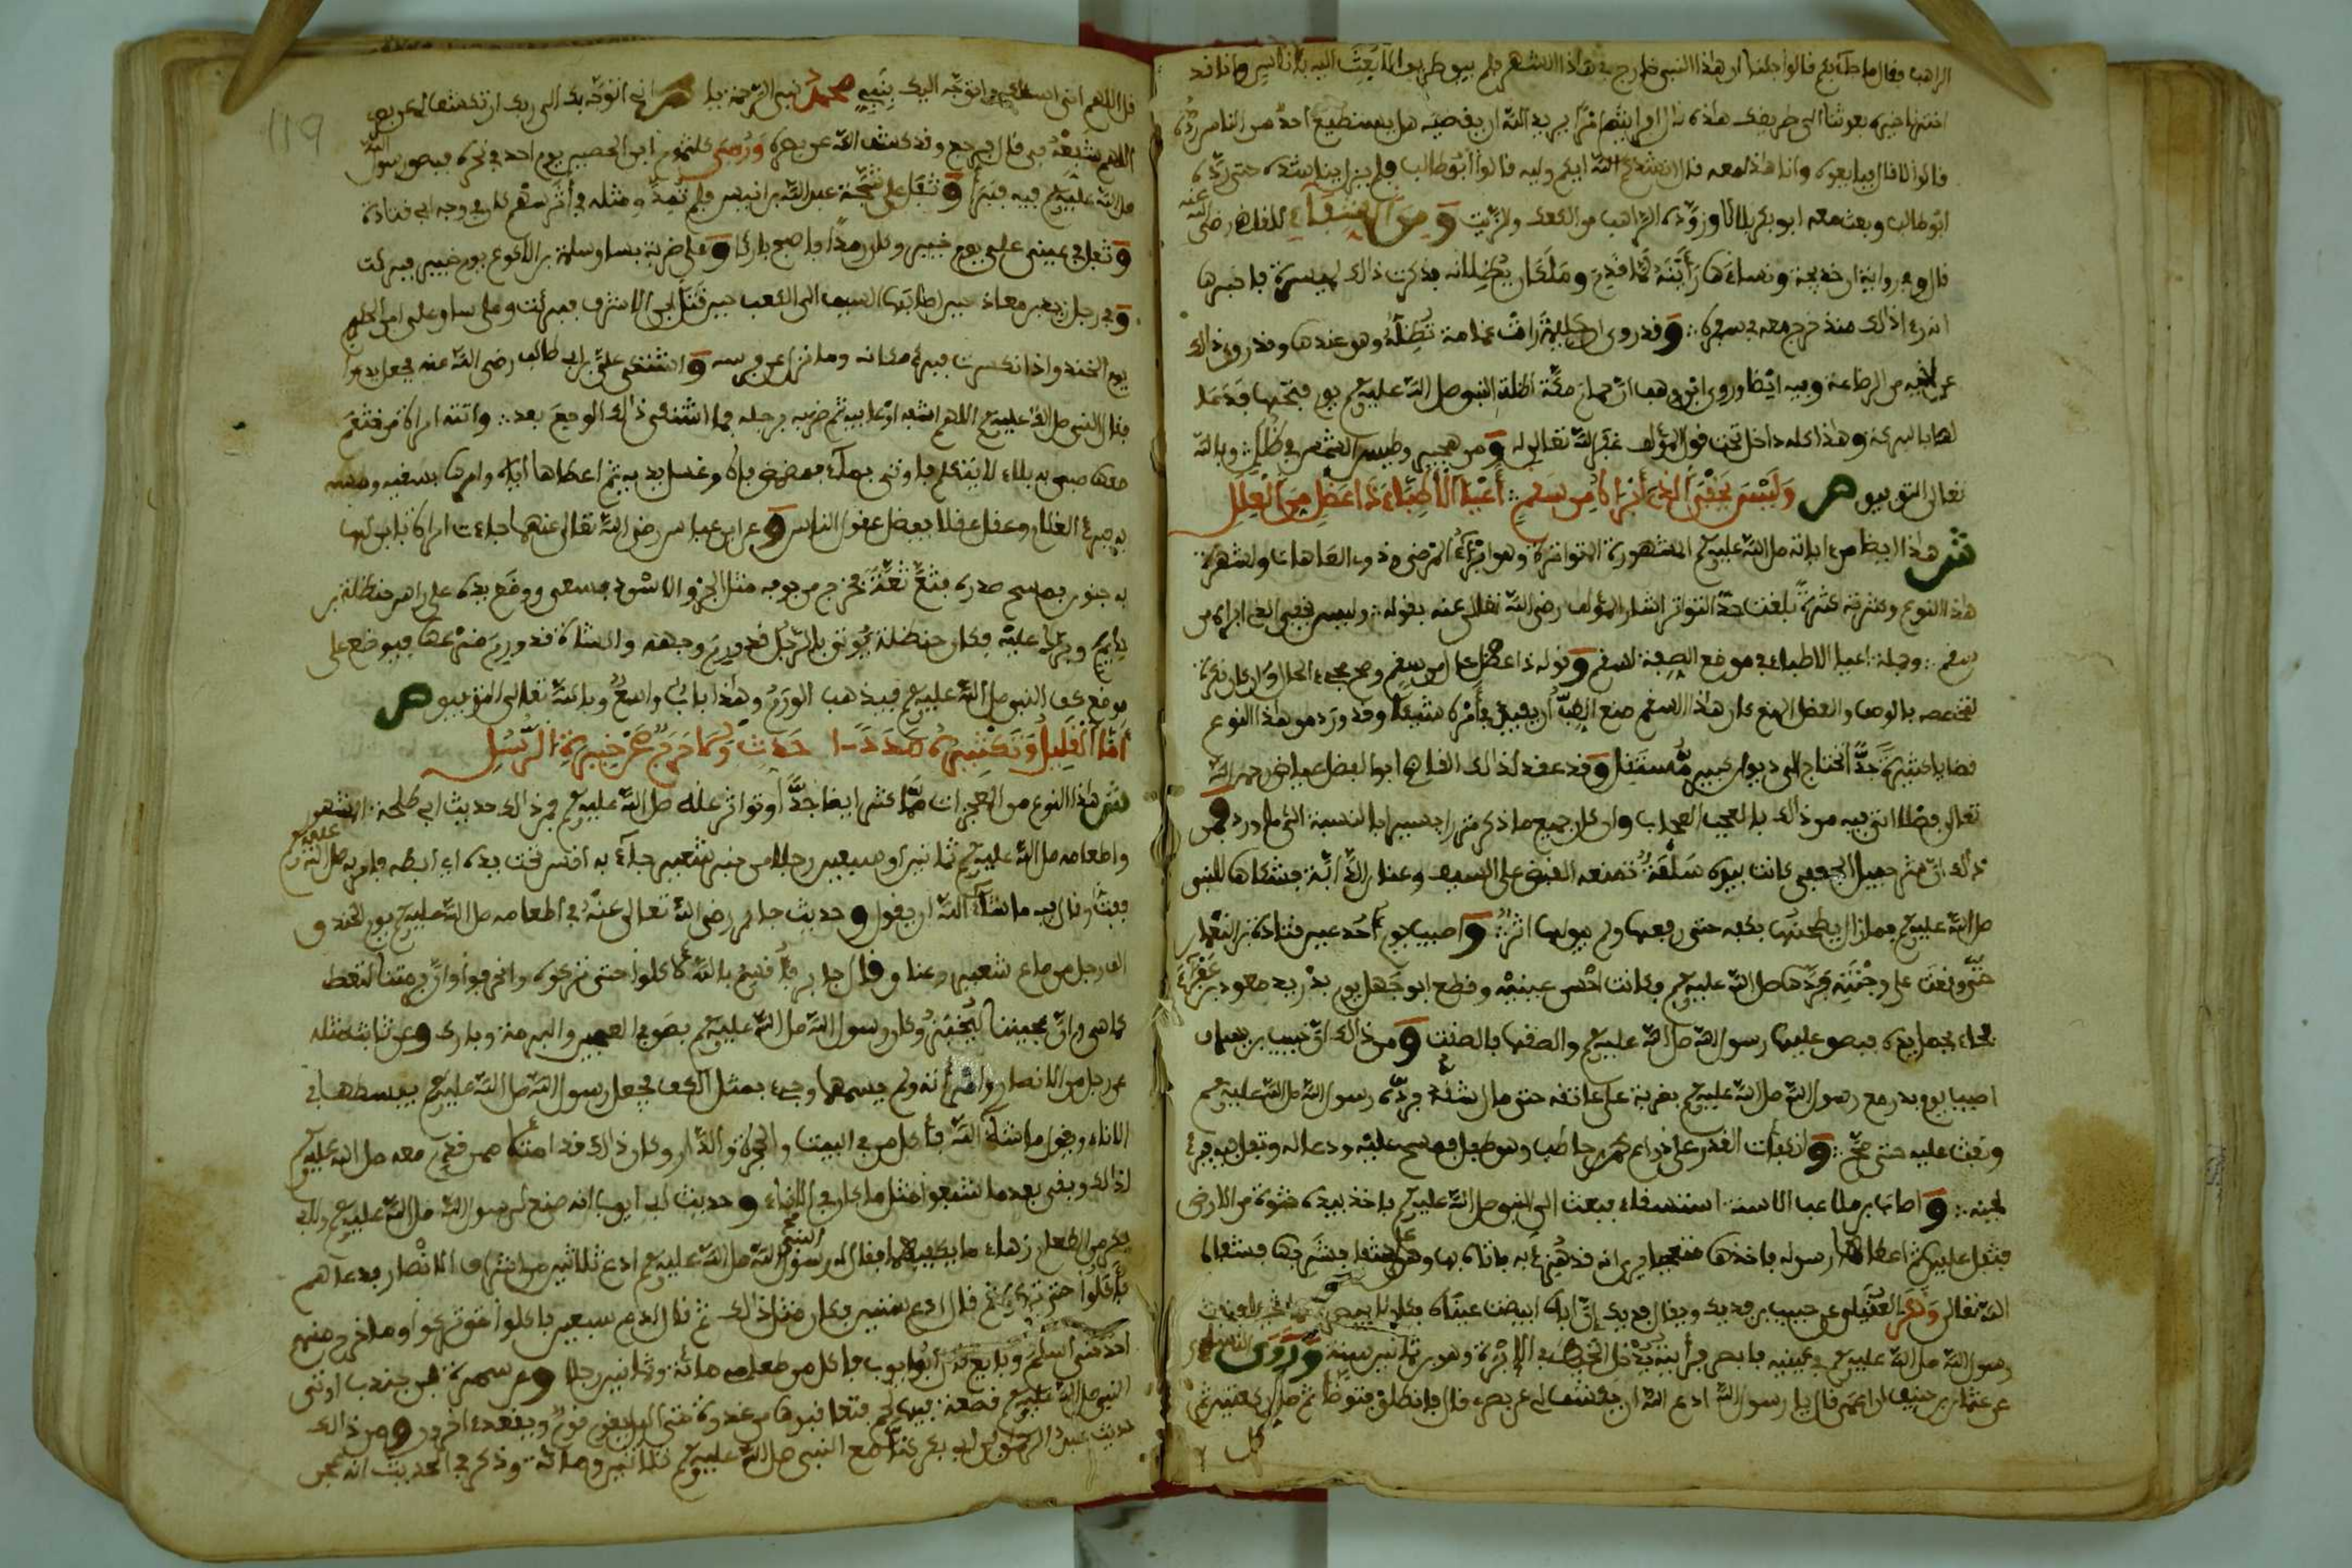 الراهب فقال ما جاء بكم قالوا جئنا ان هذا النبي خارج في هذا الشهر فلم يبق طريق الا بعث اليه باناس وانا قد
اخبرنا خبره بعثنا الى طريقك هذه قال افرايتم امرا يريد الله ان يقضيه هل يستطيع احد من الناس رده
قالوا لا قال فبايعوه واقاموا معه قال انشدكم الله ايكم وليه قالوا ابو طالب فلم يزل يناشده حتى رده
ابو طالب وبعث معه ابو بكر بلالا وزوده الراهب من الكعك والزيت ومن الشفاء للقاضي رضي الله عنه
قال وفي رواية ان خديجة ونساءها رأينه لما قدم وملكان يظلانه فذكرت ذلك لميسرة فاخبرها
انه رءا ذلك منذ خرج معه في سفره وقد روي ان حليمة رأت غمامة تظله وهو عندها وقد روي ذلك
عن اخيه من الرضاعة وفيه ايضا وروى ابن وهب ان حمام مكة اظلت النبي صلى الله عليه وسلم يوم فتحها فدعا
لها بالبركة وهذا كله داخل تحت قول المؤلف غفر الله تعالى له ومن هجير وطيس الشمس في ظلل وبالله
تعالى التوفيق ص وليس يخفى الذي أبراه من سقم أعيا الأطباء ذا عضل من العلل
ش هذا ايضا من ءاياته صلى الله عليه وسلم المشهورة المتواترة وهو ابراء المرضى وذوي العاهات ولشهرة
هذا النوع وكثرته كثرة بلغت حد التواتر اشار المؤلف رضي الله تعالى عنه بقوله وليس يخفى الذي ابراه من
سقم وجملة اعيا الاطباء في موضع الصفة لسقم وقوله ذا عضل حال من سقم وصح مجيء الحال وان كان نكرة
لتخصصه بالوصف والعضل المنع كان هذا السقم منع الطب ان يفيد في أمره شيئا وقد ورد من هذا النوع
قضايا كثيرة جدا تحتاج الى ديوان كبير مستقل وقد عقد لذلك القاضي ابو الفضل عياض رحمه الله
تعالى فصلا اتى فيه من ذلك بالعجب العجاب وان كان جميع ما ذكر نزرا يسيرا بالنسبة الى ما ورد فمن
ذلك ان شرحبيل الجعفي كانت بيده سلعة تمنعه القبض على السيف وعنان الدابة فشكاها للنبي
صلى الله عليه وسلم فما زال يطحنها بكفه حتى رفعها ولم يبق لها اثر واصيب يوم أحد عين قتادة بن النعمان
حتى وقعت على وجنته فردها صلى الله عليه وسلم فكانت احسن عينيه وقطع ابو جهل يوم بدر يد معوذ بن عفراء
فجاء يحمل يده فبصق عليها رسول الله صلى الله عليه وسلم والصقها فالصقت ومن ذلك ان خبيب بن يساف
اصيب يوم بدر مع رسول الله صلى الله عليه وسلم بضربة على عاتقه حتى مال شقه فرده رسول الله صلى الله عليه وسلم
ونفث عليه حتى صح وانكفأت القدر على ذراع محمد بن حاطب وهو طفل فمسح عليه ودعا له وتفل فيه فبرئ
لحينه واصاب بن ملاعب الاسنة استسقاء فبعث الى النبي صلى الله عليه وسلم فاخذ بيده حثوة من الارض
فتفل عليها ثم اعطاها رسوله فاخذها متعجبا يرى انه قد هزئ به فاتاه بها وهو على شفا فشربها فشفاه
الله تعالى وذكر العقيلي عن حبيب بن فديك ويقال فريك ان اباه ابيضت عيناه فكان لا يبصر بهما
رسول الله صلى الله عليه وسلم في عينيه فابصر فرأيته يدخل الخيط في الابرة وهو بن ثمانين سنة وروى النسائي
عن عثمان بن حنيف ان اعمى قال يا رسول الله ادع الله ان يكشف لي عن بصري قال فانطلق فتوضأ ثم صل ركعتين ثم
قل
قل اللهم اني اسئلك واتوجه اليك بنبيي محمد نبي الرحمة يا محمد اني اتوجه بك الى ربك ان تكشف لي عن بصري
اللهم شفعه في قال فرجع وقد كشف الله عن بصره ورمي كلثوم ابن الحصين يوم احد في نحره فبصق رسول الله
صلى الله عليه وسلم فيه فبرأ وتفل على شجة عبد الله بن انيس فلم تمد ومثله في أثر سهم كان في وجه ابي قتادة
وتفل في عيني علي يوم خيبر وكان رمدا فاصبح بارئا وعلى ضربة بساق سلمة بن الاكوع يوم خيبر فبرئت
وفي رجل زيد بن معاذ حين اصابها السيف الى الكعب حين قتل ابن الاشرف فبرئت وعلى ساق علي بن الحكم
يوم الخندق اذ انكسرت فبرئ مكانه وما نزل عن فرسه واشتكى علي بن ابي طالب رضي الله عنه فجعل يدعوا
فقال النبي صلى الله عليه وسلم اللهم اشفه او عافيه ثم ضربه برجله فما اشتكى ذلك الوجع بعد واتته امرأة من خثعم
معها صبي به بلاء لا يتكلم فاوتي بماء فمضمض فاه وغسل يديه ثم اعطاها اياه وامرها بسقيه ومسه
به فبرئ الغلام وعقل عقلا يفضل عقول الناس وعن ابن عباس رضي الله تعالى عنهما جاءت امرأة بابن لها
به جنون فمسح صدره فثع ثعة فخرج من جوفه مثل الجرو الاسود فسعى ووضع يده على راس حنظلة بن
حذيم وبرك عليه فكان حنظلة يوتى بالرجل قد ورم وجهه والشاة قد ورم ضرعها فيوضع على
موضع كف النبي صلى الله عليه وسلم فيذهب الورم وهذا باب واسع وبالله تعالى التوفيق ص
أما القليل وتكثيره مددا حدث ولا حرج عن خيرة الرسل
ش هذا النوع من المعجزات مما كثر ايضا جدا وتواتر عنه صلى الله عليه وسلم فمن ذلك حديث ابي طلحة المشهور
واطعامه صلى الله عليه وسلم ثمانين او سبعين رجلا من خبز شعير جاء به انس تحت يده اي ابطه فامر به صلى الله عليه وسلم
ففت وقال فيه ما شاء الله ان يقول وحديث جابر رضي الله تعالى عنه في اطعامه صلى الله عليه وسلم يوم الخندق
الف رجل من صاع شعير وعناق وقال جابر فأقسم بالله لأكلوا حتى تركوه وانحرفوا وان برمتنا لتغط
كما هي وان عجيننا ليخبز وكان رسول الله صلى الله عليه وسلم بصق في العجين والبرمة وبارك وعن ثابت مثله
عن رجل من الانصار وامرأته ولم يسمها وجيء بمثل الكف فجعل رسول الله صلى الله عليه وسلم يبسطها في
الاناء ويقول ما شاء الله فأكل من في البيت والحجرة والدار وكان ذلك قد امتلأ ممن قدم معه صلى الله عليه وسلم
لذلك وبقي بعدما شبعوا مثل ما كان في الاناء وحديث ابي ايوب انه صنع لرسول الله صلى الله عليه وسلم ولابي
بكر من الطعام زهاء ما يكفيهما فقال له رسول الله صلى الله عليه وسلم ادع ثلاثين من اشراف الانصار فدعاهم
فأكلوا حتى تركوا ثم قال ادع ستين فكان مثل ذلك ثم قال ادع سبعين فاكلوا حتى تركوا وما خرج منهم
احد حتى اسلم وبايع قال ابو ايوب فاكل من طعامي مائة وثمانين رجلا وعن سمرة بن جندب اوتي
النبي صلى الله عليه وسلم قصعة فيها لحم فتعاقبوها من غدوة حتى الليل يقوم قوم ويقعد ءاخرون ومن ذلك
حديث عبد الرحمن بن ابي بكر كنا مع النبي صلى الله عليه وسلم ثلاثين ومائة وذكر في الحديث انه عجن
119